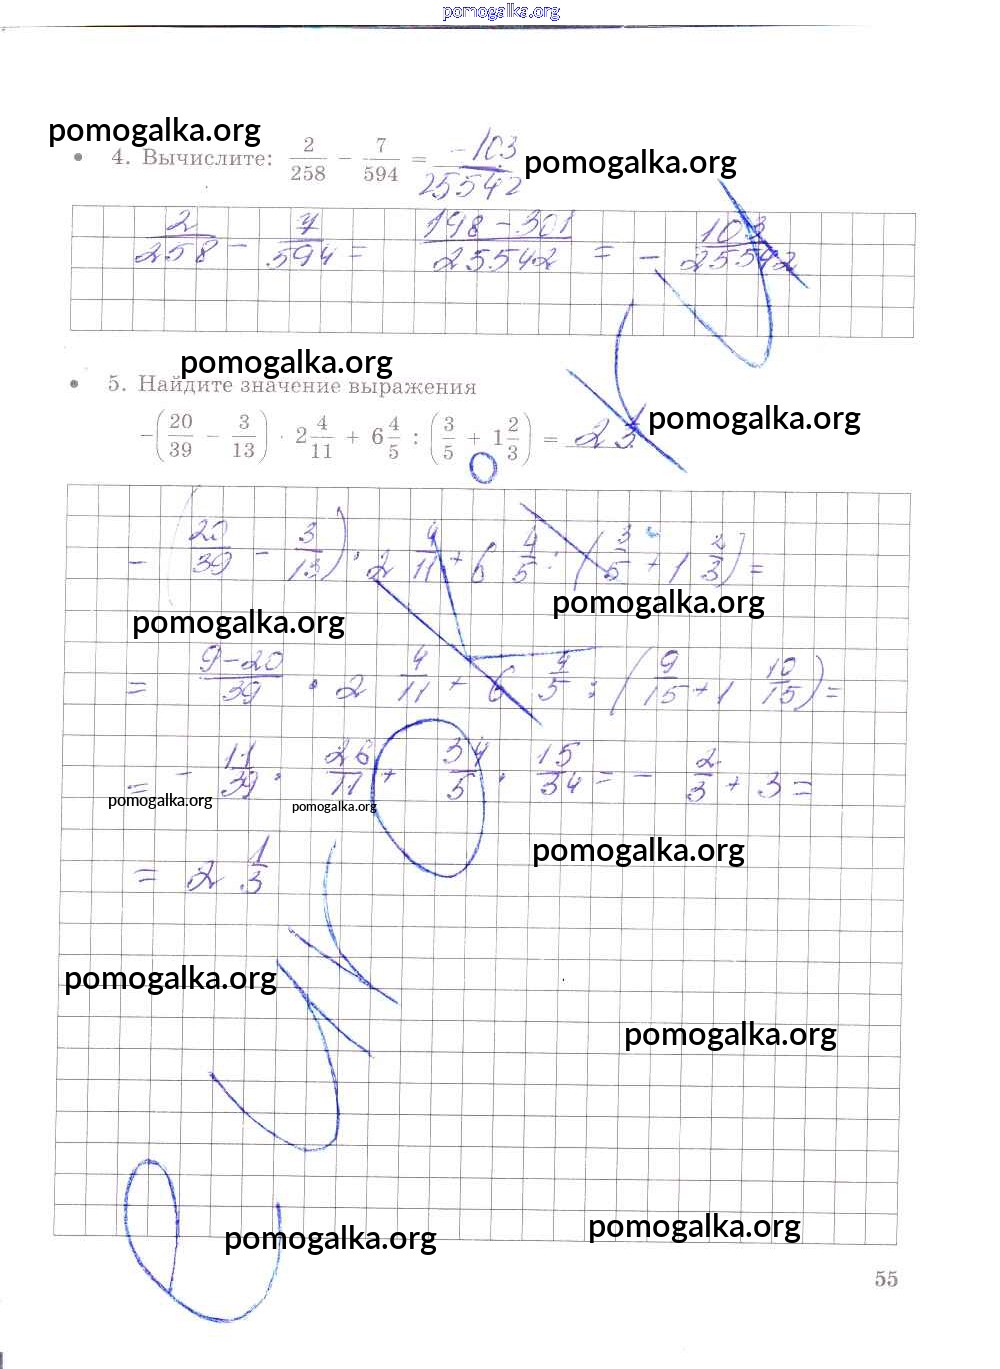 pomogalka.org
pomogalka.org
• 4. Вычислите: 2/258 − 7/594 = −103/25542
pomogalka.org
2/258 − 7/594 = (198 − 301)/25542 = − 103/25542
pomogalka.org
• 5. Найдите значение выражения
pomogalka.org
−(20/39 − 3/13) · 2 4/11 + 6 4/5 : (3/5 + 1 2/3) = 2 1/3
− (20/39 − 3/13) · 2 4/11 + 6 4/5 : (3/5 + 1 2/3) =
pomogalka.org
pomogalka.org
= (9 − 20)/39 · 2 4/11 + 6 4/5 : (9/15 + 1 10/15) =
= − 11/39 · 26/11 + 34/5 · 15/34 = − 2/3 + 3 =
pomogalka.org pomogalka.org
pomogalka.org
= 2 1/3
pomogalka.org
pomogalka.org
pomogalka.org
pomogalka.org
55